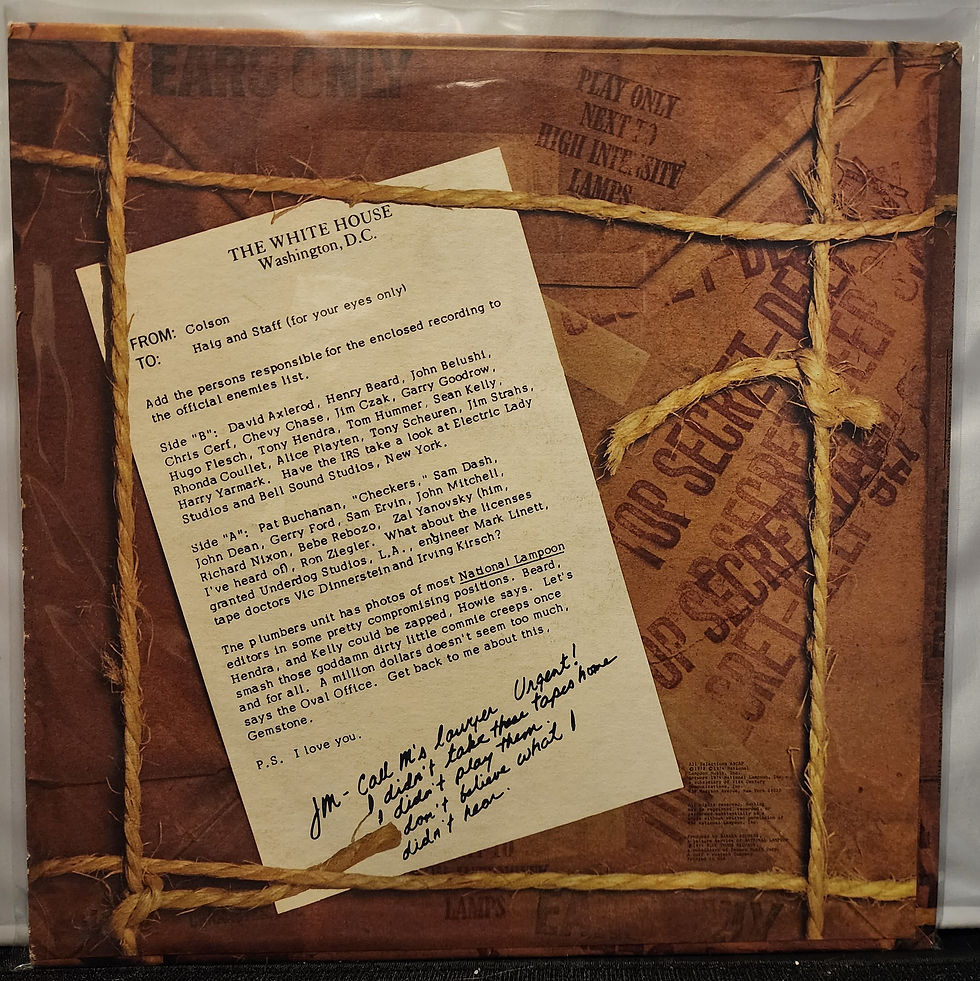 EARS ONLY
PLAY ONLY
NEXT TO
HIGH INTENSITY
LAMPS
THE WHITE HOUSE
Washington, D.C.
FROM: Colson
TO: Haig and Staff (for your eyes only)
Add the persons responsible for the enclosed recording to
the official enemies list.
Side "B": David Axlerod, Henry Beard, John Belushi,
Chris Cerf, Chevy Chase, Jim Czak, Garry Goodrow,
Hugo Flesch, Tony Hendra, Tom Hummer, Sean Kelly,
Rhonda Coullet, Alice Playten, Tony Scheuren, Jim Strahs,
Harry Yarmark. Have the IRS take a look at Electric Lady
Studios and Bell Sound Studios, New York.
Side "A": Pat Buchanan, "Checkers," Sam Dash,
John Dean, Gerry Ford, Sam Ervin, John Mitchell,
Richard Nixon, Bebe Rebozo, Zal Yanovsky (him,
I've heard of), Ron Ziegler. What about the licenses
granted Underdog Studios, L.A., engineer Mark Linett,
tape doctors Vic Dinnerstein and Irving Kirsch?
The plumbers unit has photos of most National Lampoon
editors in some pretty compromising positions. Beard,
Hendra, and Kelly could be zapped, Howie says. Let's
smash those goddamn dirty little commie creeps once
and for all. A million dollars doesn't seem too much,
says the Oval Office. Get back to me about this,
Gemstone.
P.S. I love you.
JM - Call M's lawyer Urgent!
I didn't take these tapes home
I didn't play them.
don't believe what I
didn't hear.
TOP SECRET-DE
TOP SECRET
TOP SECRET
LAMPS
EARS ONLY